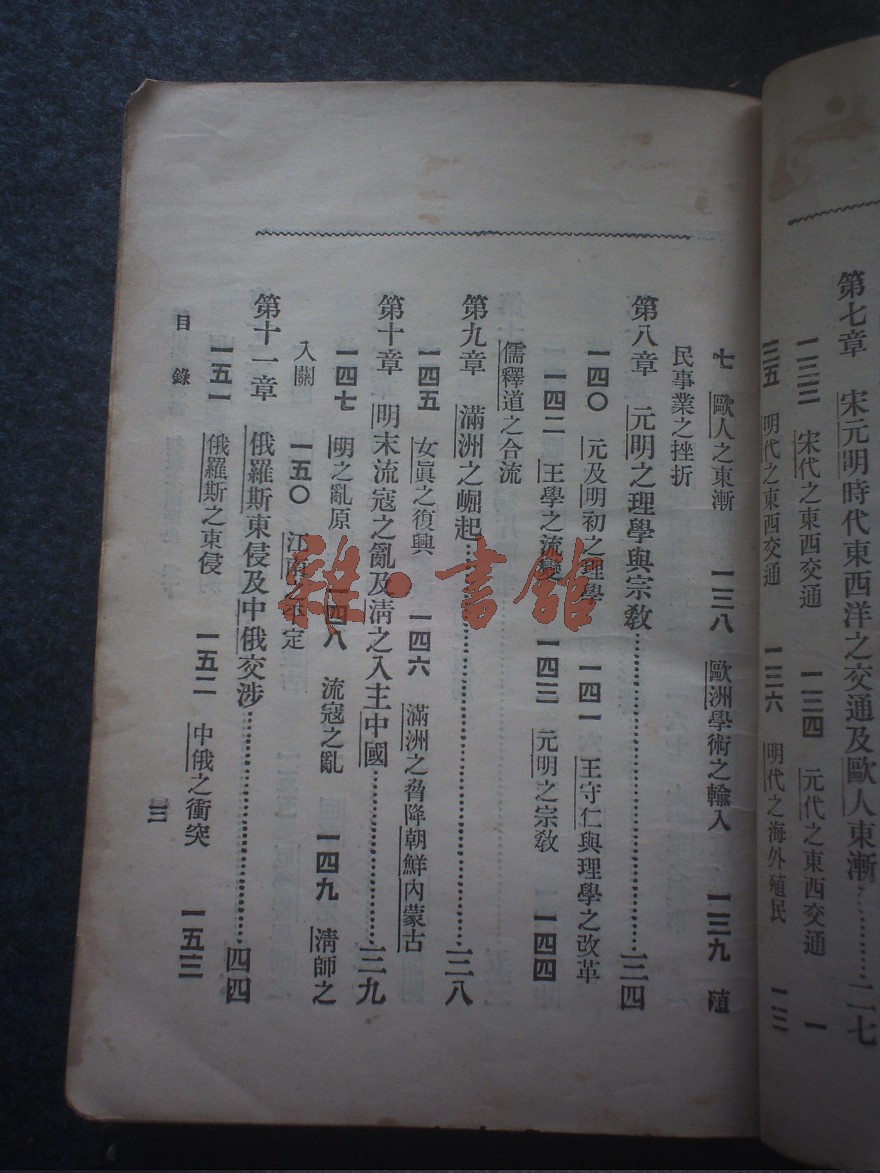 第七章　宋元明時代東西洋之交通及歐人東漸………二七
一三三　宋代之東西交通　一三四　元代之東西交通　一
三五　明代之東西交通　一三六　明代之海外殖民　一三
七　歐人之東漸　一三八　歐洲學術之輸入　一三九　殖
民事業之挫折
第八章　元明之理學與宗敎………三四
一四〇　元及明初之理學　一四一　王守仁與理學之改革
一四二　王學之流變　一四三　元明之宗敎　一四四
儒釋道之合流
第九章　滿洲之崛起………三八
一四五　女眞之復興　一四六　滿洲之脅降朝鮮內蒙古
第十章　明末流寇之亂及淸之入主中國………三九
一四七　明之亂原　一四八　流寇之亂　一四九　淸師之
入關　一五〇　江南之平定
第十一章　俄羅斯東侵及中俄交涉………四四
一五一　俄羅斯之東侵　一五二　中俄之衝突　一五三
目錄
三
雜·書館